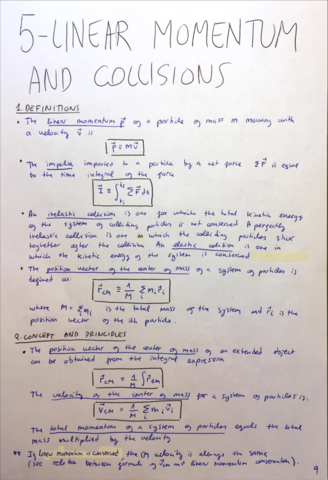 5-LINEAR MOMENTUM
AND COLLISIONS
1. DEFINITIONS
• The linear momentum p⃗ of a particle of mass m moving with
a velocity v⃗ is
p⃗ ≡ mv⃗
• The impulse imparted to a particle by a net force ΣF⃗ is equal
to the time integral of the force
I⃗ ≡ ∫ti^tf ΣF⃗ dt
• An inelastic collision is one for which the total kinetic energy
of the system of colliding particles is not conserved. A perfectly
inelastic collision is one in which the colliding particles stick
together after the collision. An elastic collision is one in
which the kinetic energy of the system is conserved
• The position vector of the center of mass of a system of particles is
defined as:
r⃗CM ≡ 1/M Σi mi r⃗i
where M = Σi mi is the total mass of the system and r⃗i is the
position vector of the ith particle.
2. CONCEPT AND PRINCIPLES
• The position vector of the center of mass of an extended object
can be obtained from the integral expression
r⃗CM = 1/M ∫ r⃗ dm
The velocity of the center of mass for a system of particles is:
v⃗CM = 1/M Σi mi v⃗i
The total momentum of a system of particles equals the total
mass multiplied by the velocity
** If linear momentum is conserved, the CM velocity is always the same
(see relation between formula of v⃗CM and linear momentum conservation).
9